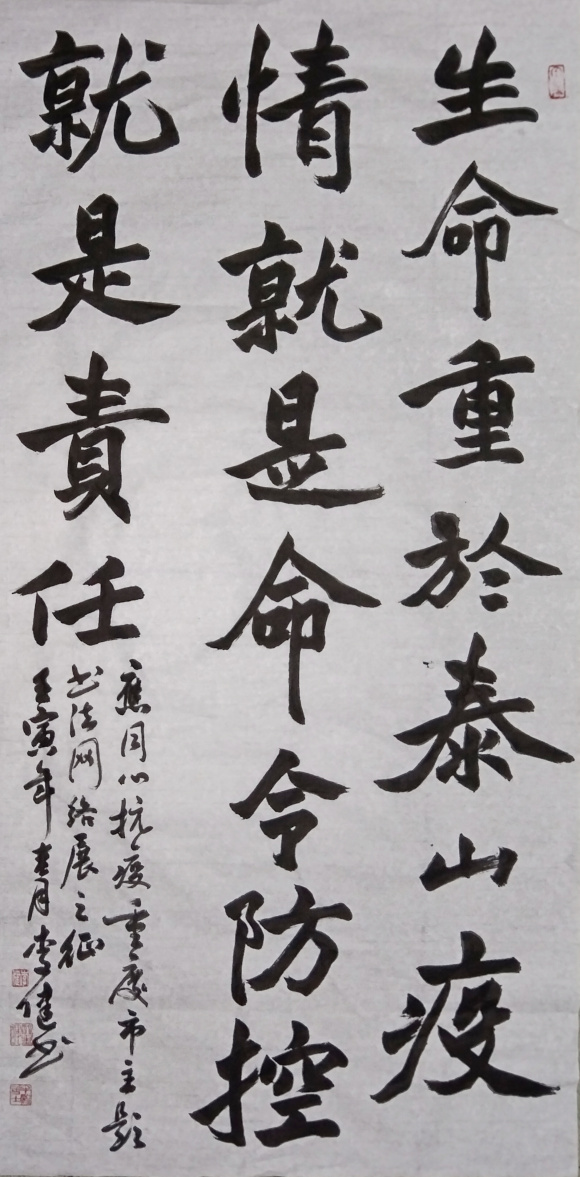 生命重於泰山疫
情就是命令防控
就是責任
應同心抗疫重慶市主題
书法网络展之征
壬寅年春月李健书